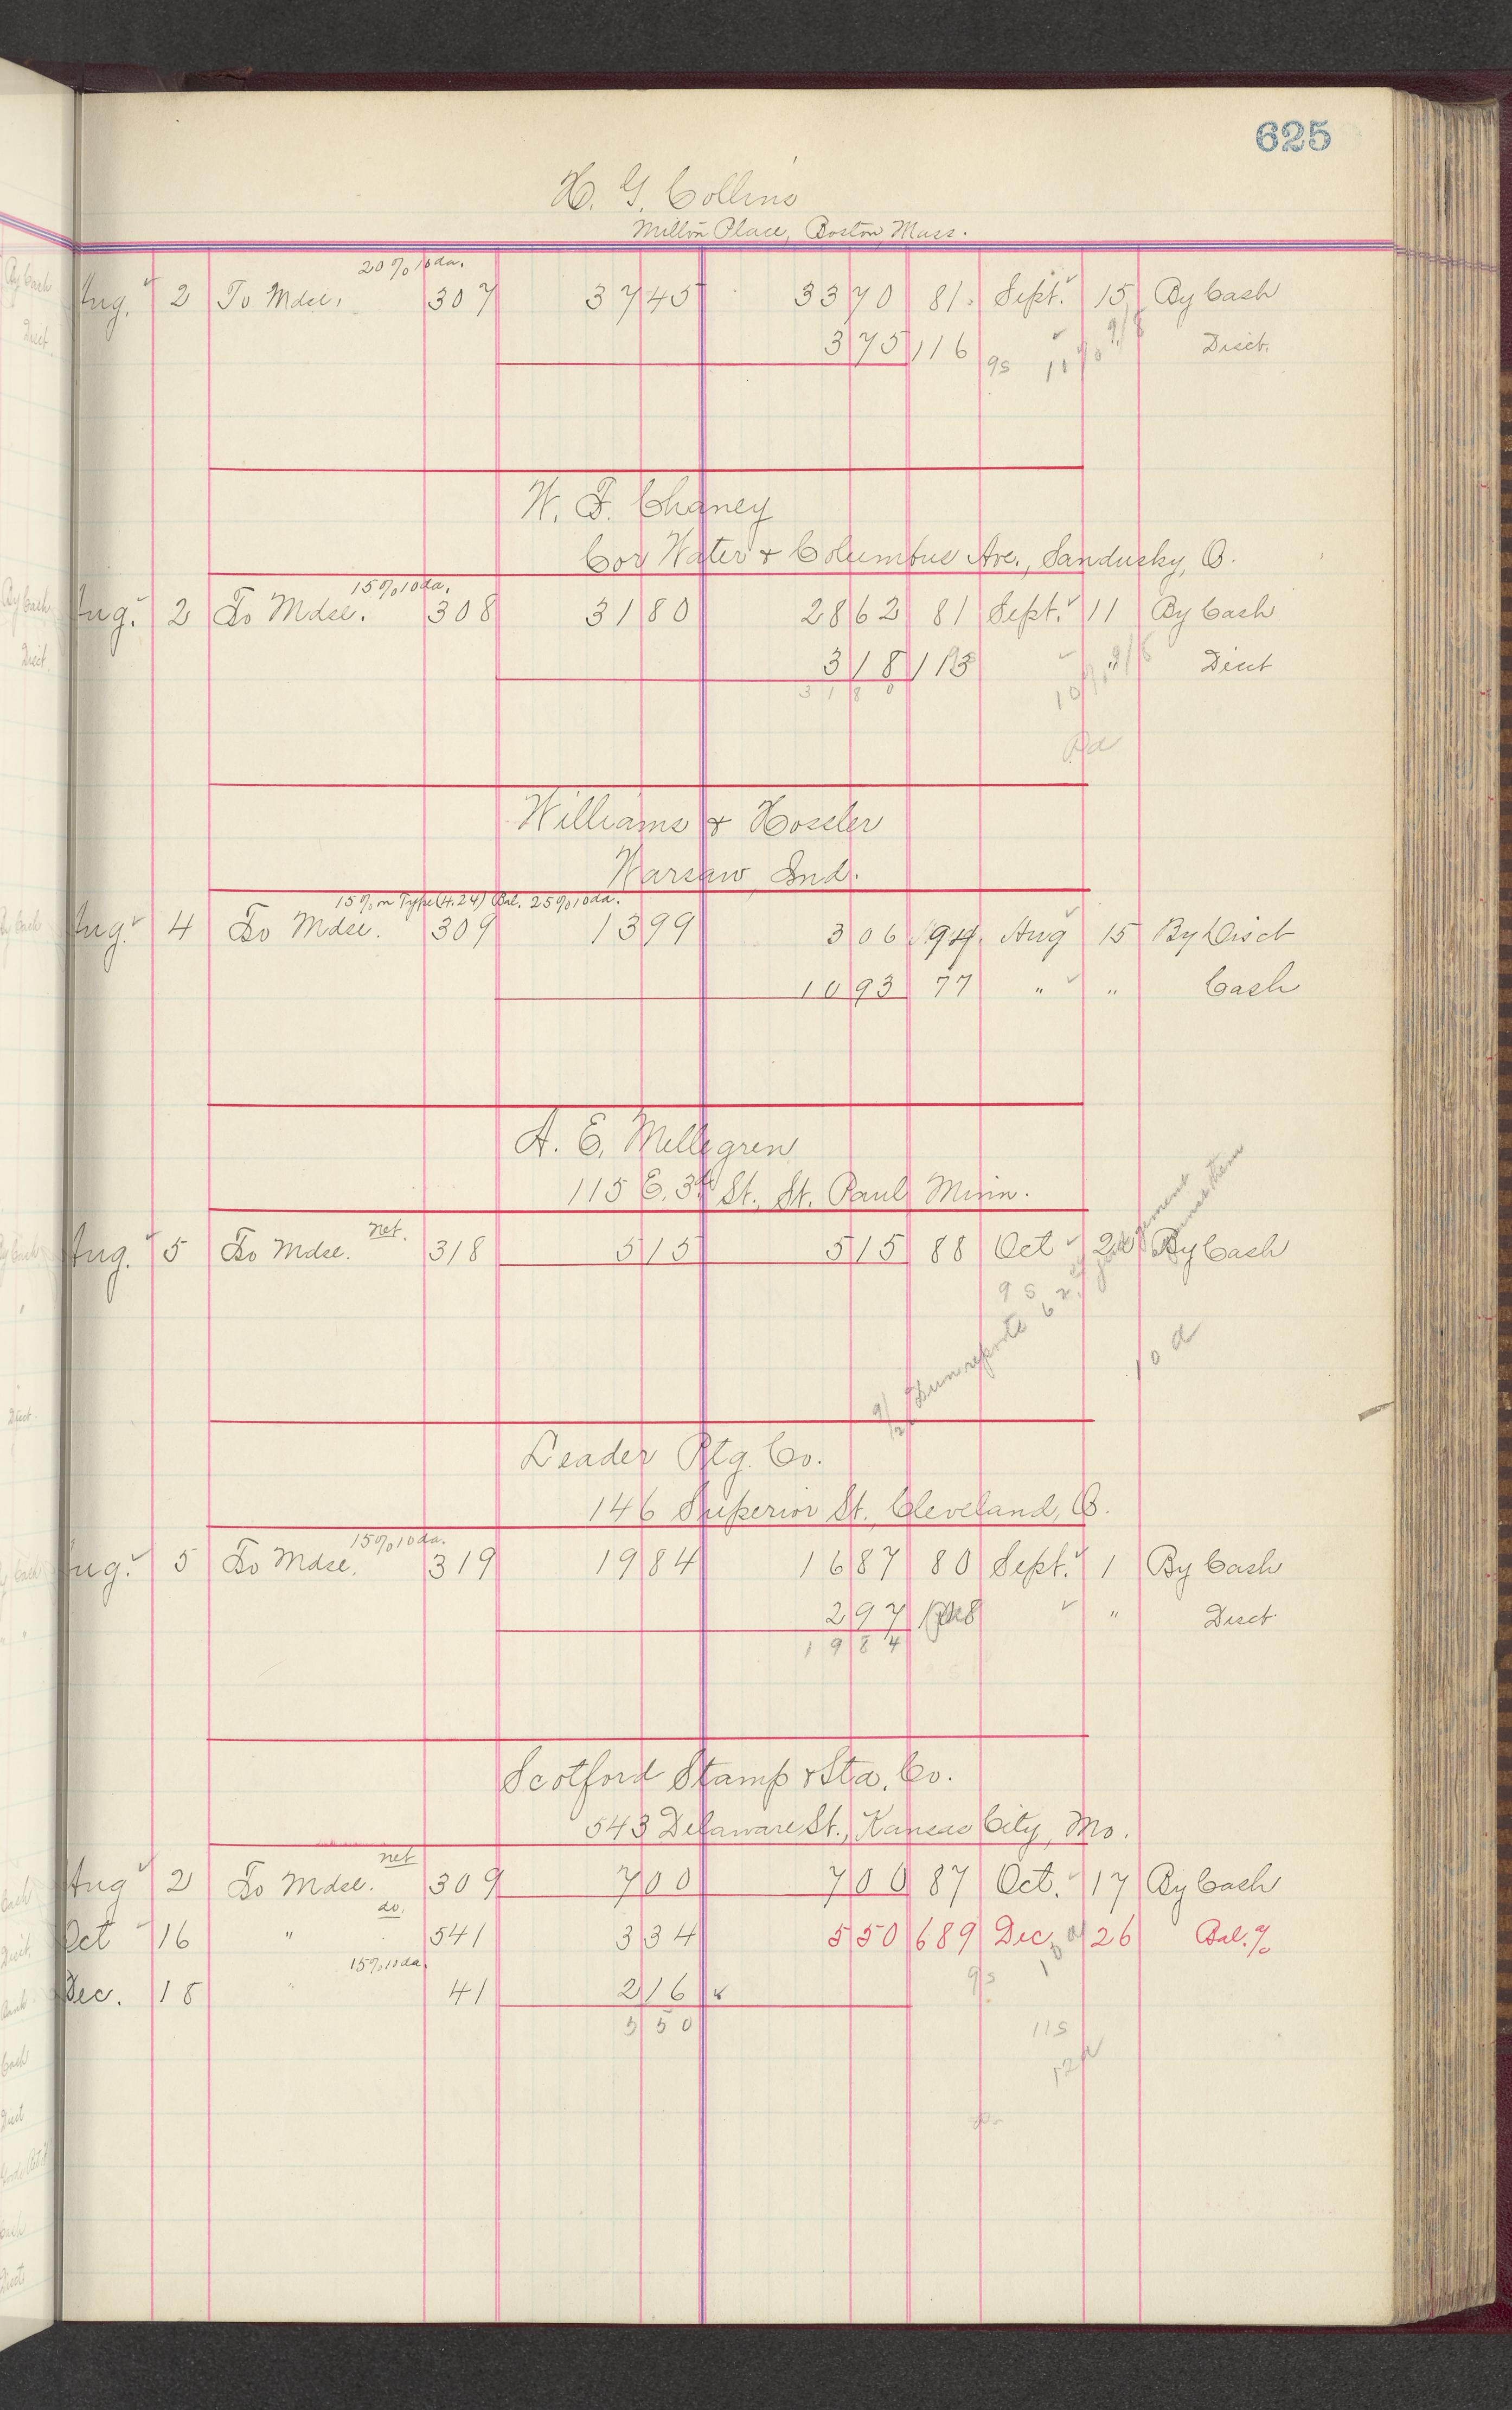 625
H. G. Collins
Milton Place, Boston, Mass.
20% 10 da.
Aug. 2 To Mdse. 307 37 45 33 70 81 Sept. 15 By Cash
3 75 116 9s 10% 9/8 Disct.
W. F. Chaney
Cor Water & Columbus Ave., Sandusky, O.
15% 10 da.
Aug. 2 To Mdse. 308 31 80 28 62 81 Sept. 11 By Cash
3 18 113 10% 9/8 " Disct
31 80
Pd
Williams & Hossler
Warsaw, Ind.
15% on Type (4.24) Bal. 25% 10 da.
Aug. 4 To Mdse. 309 13 99 3 06 94 Aug 15 By Disct
10 93 77 " " Cash
A. E. Mellegren
115 E. 3rd St., St. Paul, Minn.
net.
Aug. 5 To Mdse. 318 5 15 5 15 88 Oct By Cash
9s
9/2 Dun reports against them
10 d
Leader Ptg. Co.
146 Superior St., Cleveland, O.
15% 10 da.
Aug. 5 To Mdse. 319 19 84 16 87 80 Sept. 1 By Cash
2 97 " Disct
19 84
Scotford Stamp & Sta. Co.
543 Delaware St., Kansas City, Mo.
net
Aug 2 To Mdse. 309 7 00 7 00 87 Oct. 17 By Cash
do.
Oct 16 " 541 3 34 5 50 689 Dec. 26 Bal. %
15% 10 da.
Dec. 18 " 41 2 16
9s 10 d
5 50
11s
12d